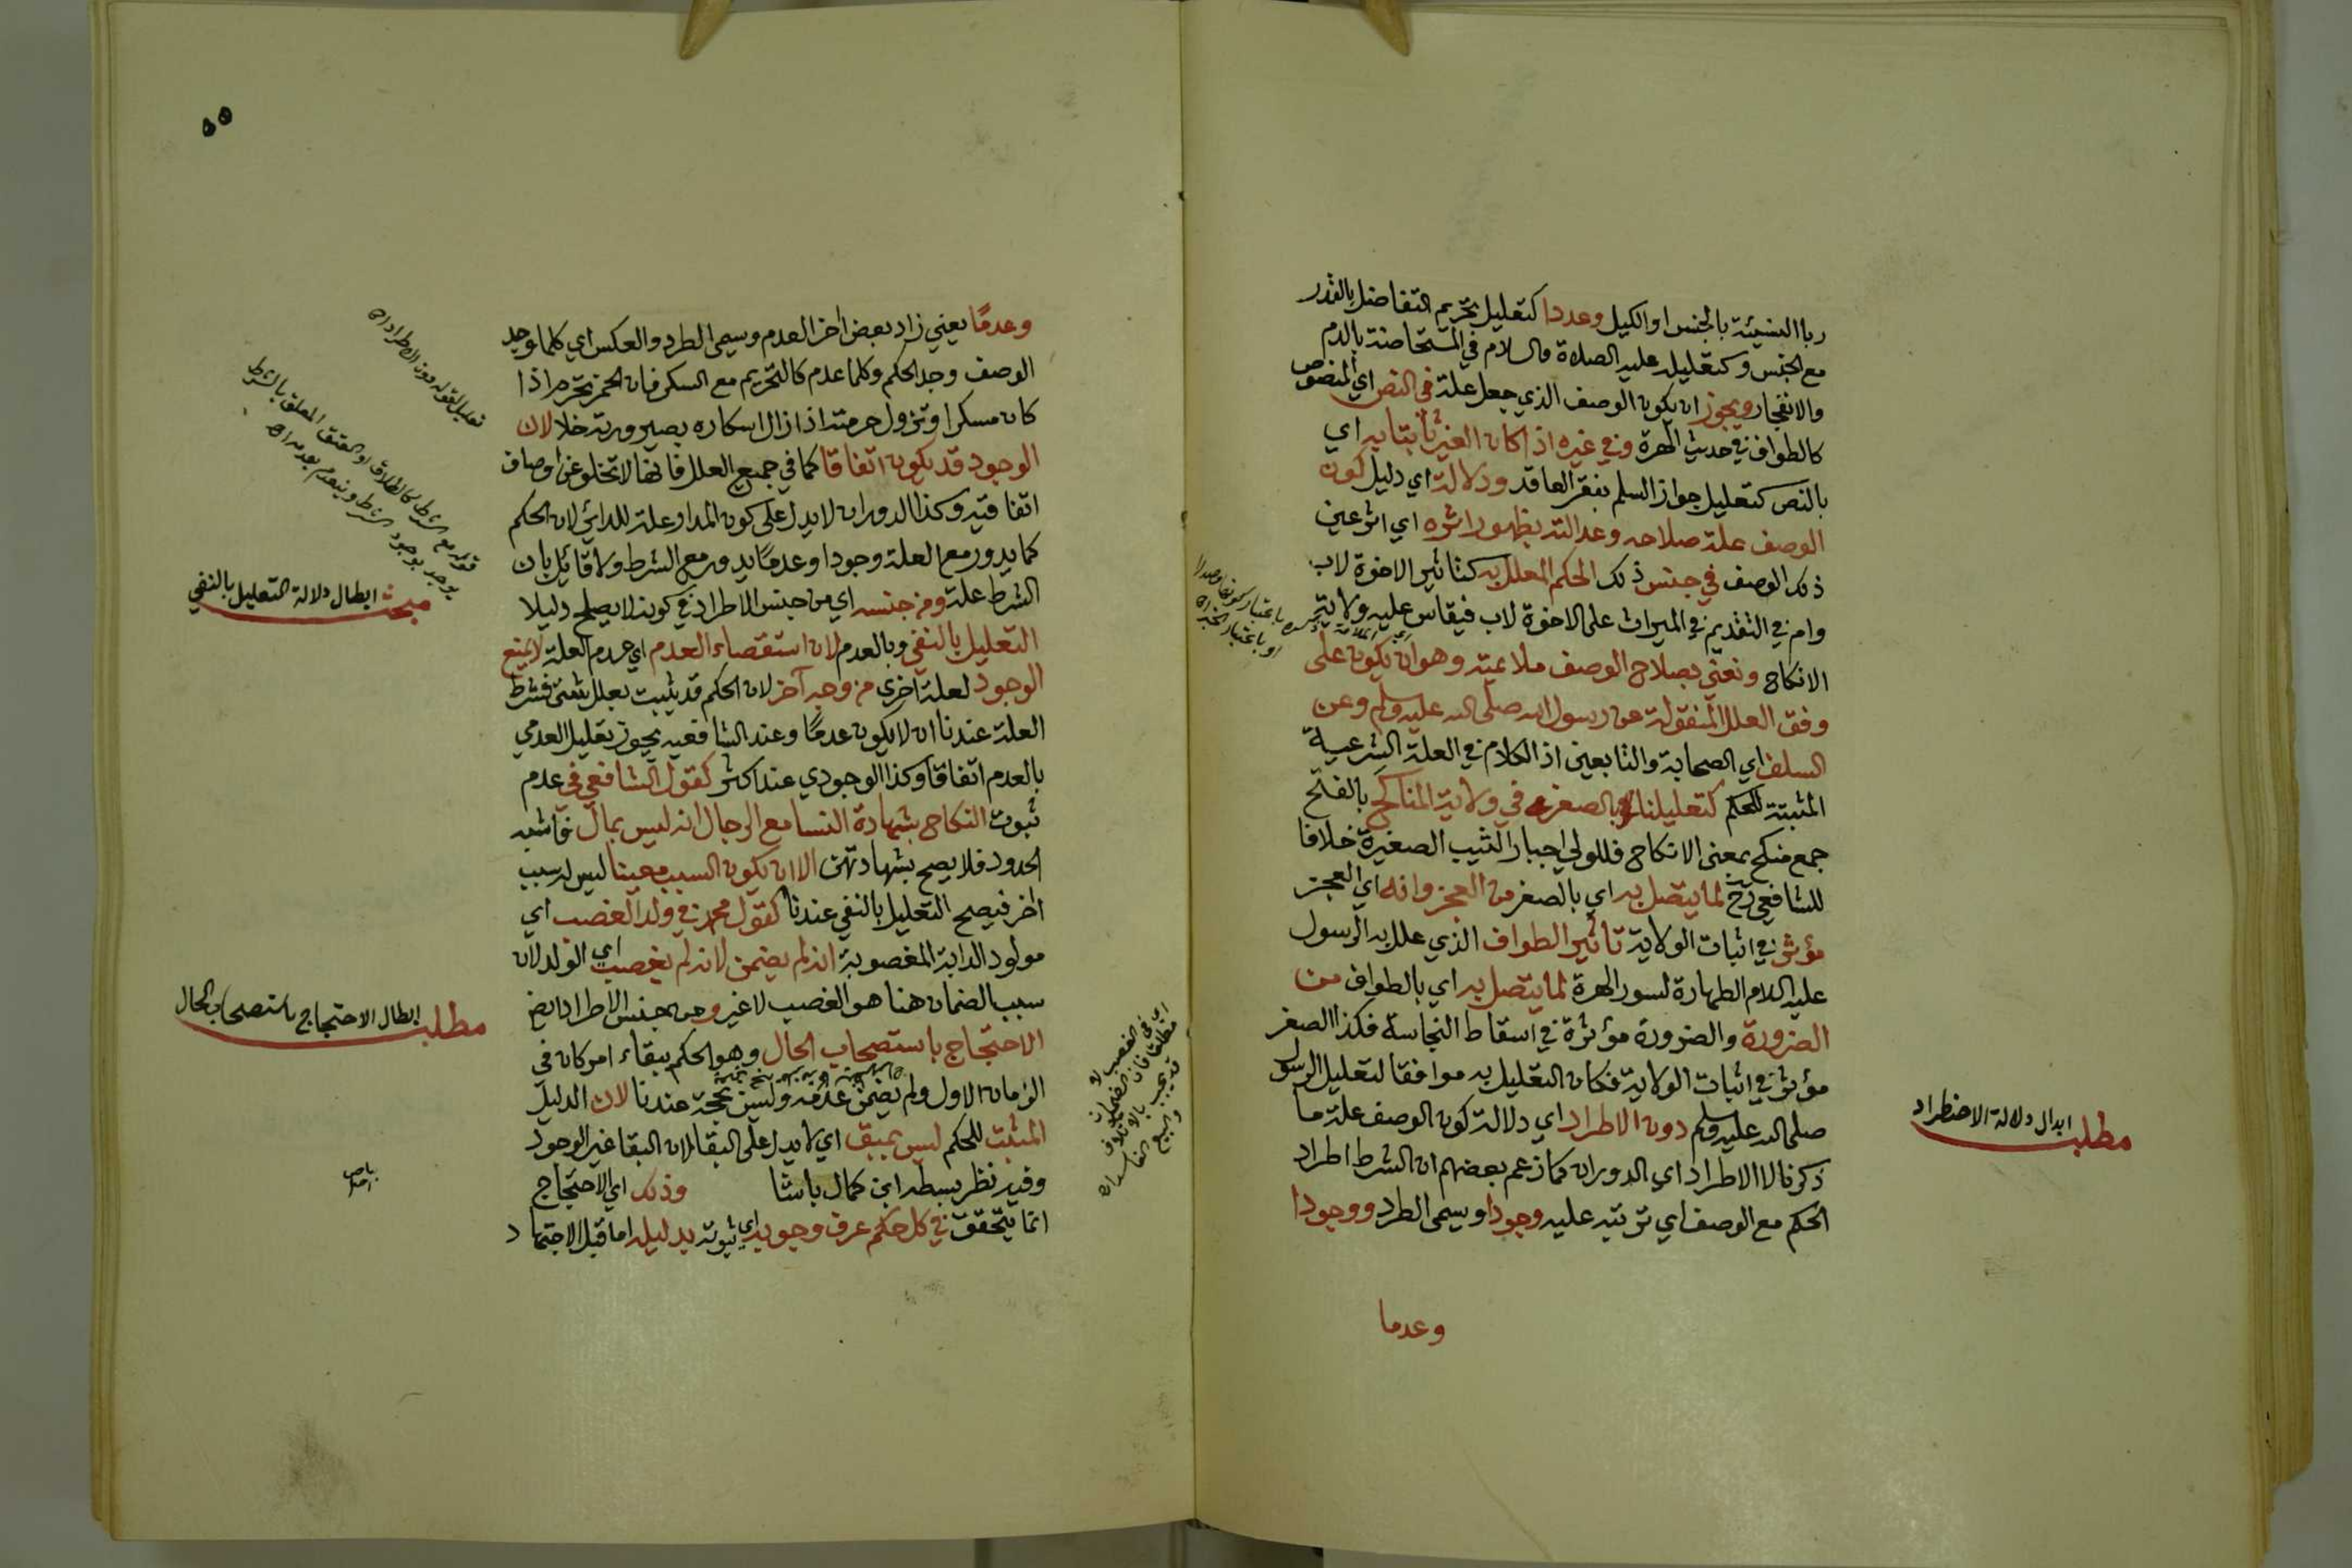 ربا النسيئة بالجنس او الكيل وعددا كتعليل تحريم التفاضل بالقدر
مع الجنس وكتعليله عليه الصلاة والسلام في المستحاضة بالدم
والانفجار ويجوز ان يكون الوصف الذي جعل علة في النص اي المنصوص
كالطواف في حديث الهرة وفي غيره اذا كان الغير ثابتا به اي
بالنص كتعليل جواز السلم بفقر العاقد ودلالة اي دليل كون
الوصف علة صلاحه وعدالته بظهور اثره اي اثر عين
ذلك الوصف في جنس ذلك الحكم المعلل به كتاثير الاخوة لاب
وام في التقديم في الميراث على الاخوة لاب فيقاس عليه ولاية
الانكاح ونعني بصلاح الوصف ملائمته وهو ان يكون على
وفق العلل المنقولة عن رسول الله صلى الله عليه وسلم وعن
السلف اي الصحابة والتابعين اذ الكلام في العلة الشرعية
المثبتة للحكم كتعليلنا بالصغر في ولاية المناكح بالفتح
جمع منكح بمعنى الانكاح فللولي اجبار الثيب الصغيرة خلافا
للشافعي رح لما يتصل به اي بالصغر من العجز وانه اي العجز
مؤثر في اثبات الولاية تاثير الطواف الذي علل به الرسول
عليه السلام الطهارة لسور الهرة لما يتصل به اي بالطواف من
الضرورة والضرورة مؤثرة في اسقاط النجاسة فكذا الصغر
مؤثر في اثبات الولاية فكان التعليل به موافقا لتعليل الرسول
صلى الله عليه وسلم دون الاطراد اي دلالة كون الوصف علة ما
ذكرنا لا الاطراد اي الدوران كما زعم بعضهم ان الشرط اطراد
الحكم مع الوصف اي ترتبه عليه وجودا ويسمى الطرد ووجودا
وعدما
باعتبار كونها
او باعتبار
مطلب ابدال دلالة الاضطراد
٥٥
وعدمًا يعني زاد بعض اخر العدم وسمي الطرد والعكس اي كلما وجد
الوصف وجد الحكم وكلما عدم كالتحريم مع السكر فان الخمر تحرم اذا
كان مسكرا وتزول حرمته اذا زال اسكاره بصيرورته خلا لان
الوجود قد يكون اتفاقا كما في جميع العلل فانها لا تخلو عن اوصاف
اتفاقية وكذا الدوران لا يدل على كون المدار علة للدائر لان الحكم
كما يدور مع العلة وجودا وعدمًا يدور مع الشرط ولا قائل بان
الشرط علة ومن جنسه اي من جنس الاطراد في كونه لا يصلح دليلا
التعليل بالنفي وبالعدم لان استقصاء العدم اي عدم العلة لا يمنع
الوجود لعلة اخرى من وجه آخر لان الحكم قد يثبت بعلل شتى فشرط
العلة عندنا ان لا يكون عدمًا وعند الشافعيه يجوز تعليل العدمي
بالعدم اتفاقا وكذا الوجودي عند اكثر كقول الشافعي في عدم
ثبوت النكاح بشهادة النسا مع الرجال انه ليس بمال فاشبه
الحدود فلا يصح بشهادتهن الا ان يكون السبب معينا ليس له سبب
اخر فيصح التعليل بالنفي عندنا كقول محمد في ولد الغصب اي
مولود الدابة المغصوبة انه لم يضمن لانه لم يغصب اي الولد لان
سبب الضمان هنا هو الغصب لا غير ومن جنس الاطراد ايضا
الاحتجاج باستصحاب الحال وهو الحكم ببقاء امر كان في
الزمان الاول ولم يضمن عدمه وليس بحجة عندنا لان الدليل
المثبت للحكم ليس بمبق اي لا يدل على البقا لان البقا غير الوجود
وفيه نظر بسطه ابن كمال باشا وذلك اي الاحتجاج
انما يتحقق في كل حكم عرف وجوبه اي ثبوته بدليله اما قبل الاجتهاد
تعليل لقوله دون الاطراد اه
قوله مع الشرط كالطلاق او العتق المعلق بالشرط
يوجد بوجود الشرط وينعدم بعدمه اه
مبحث ابطال دلالة التعليل بالنفي
مطلب ابطال الاحتجاج باستصحاب الحال
اي في الغصب لا
مطلقا فان الضمان
قد يجب بالاتلاف
والبيع الفاسد اه